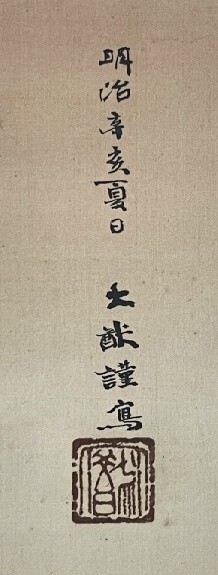 明治辛亥夏日
大猷謹寫